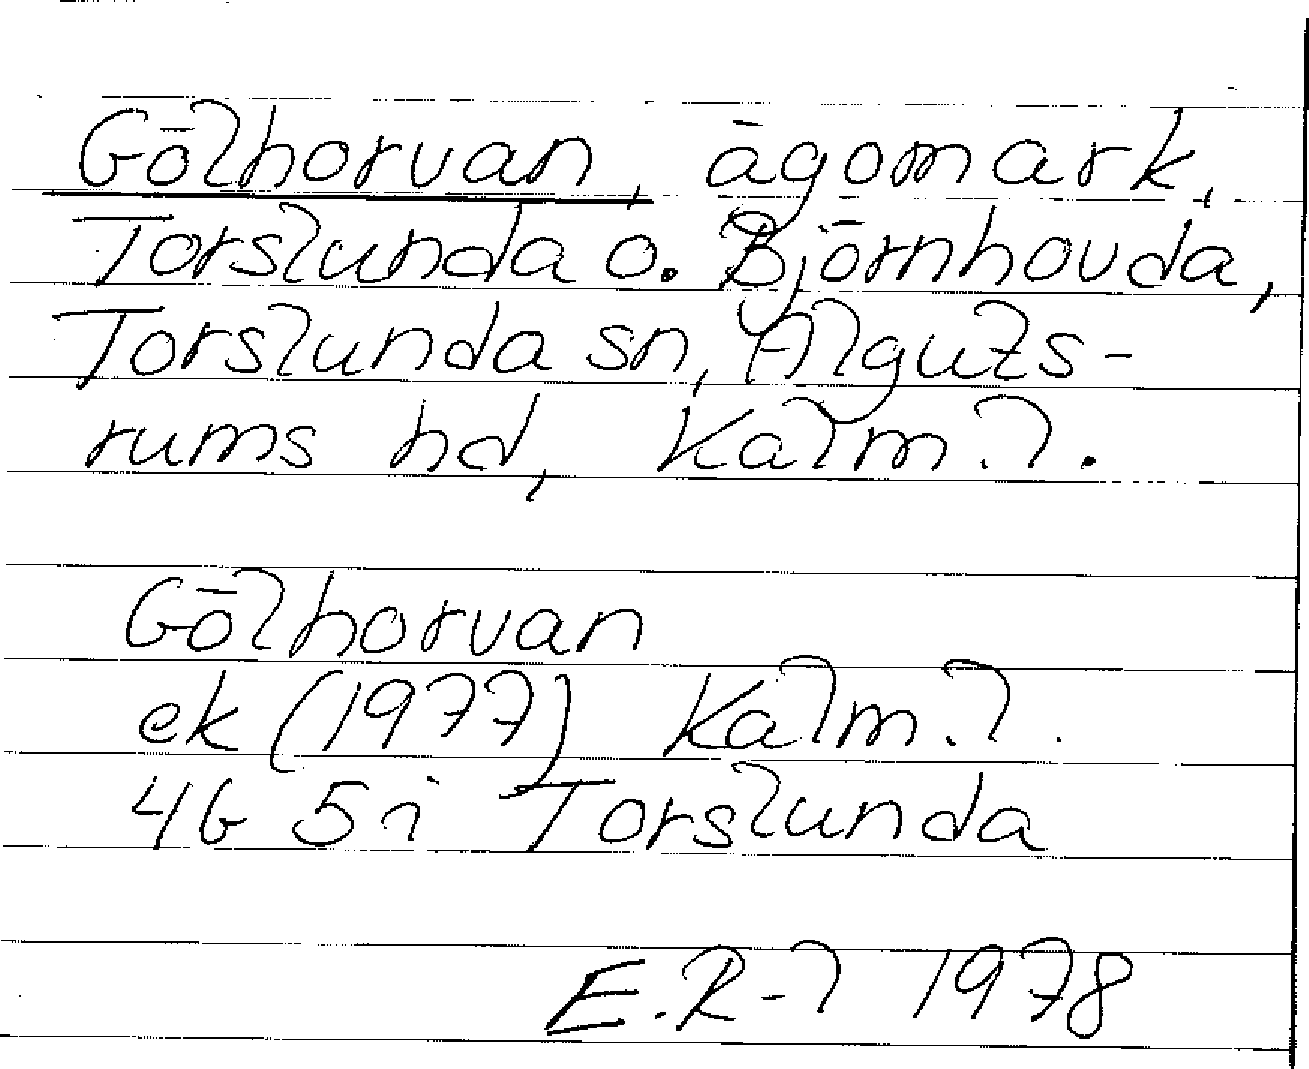 Gölhorvan, ägomark,
Torslunda o. Björnhovda,
Torslunda sn, Alguts-
rums hd, Kalm.l.
Gölhorvan
ek (1977) Kalm.l.
4G 5i Torslunda
E.R-l 1978